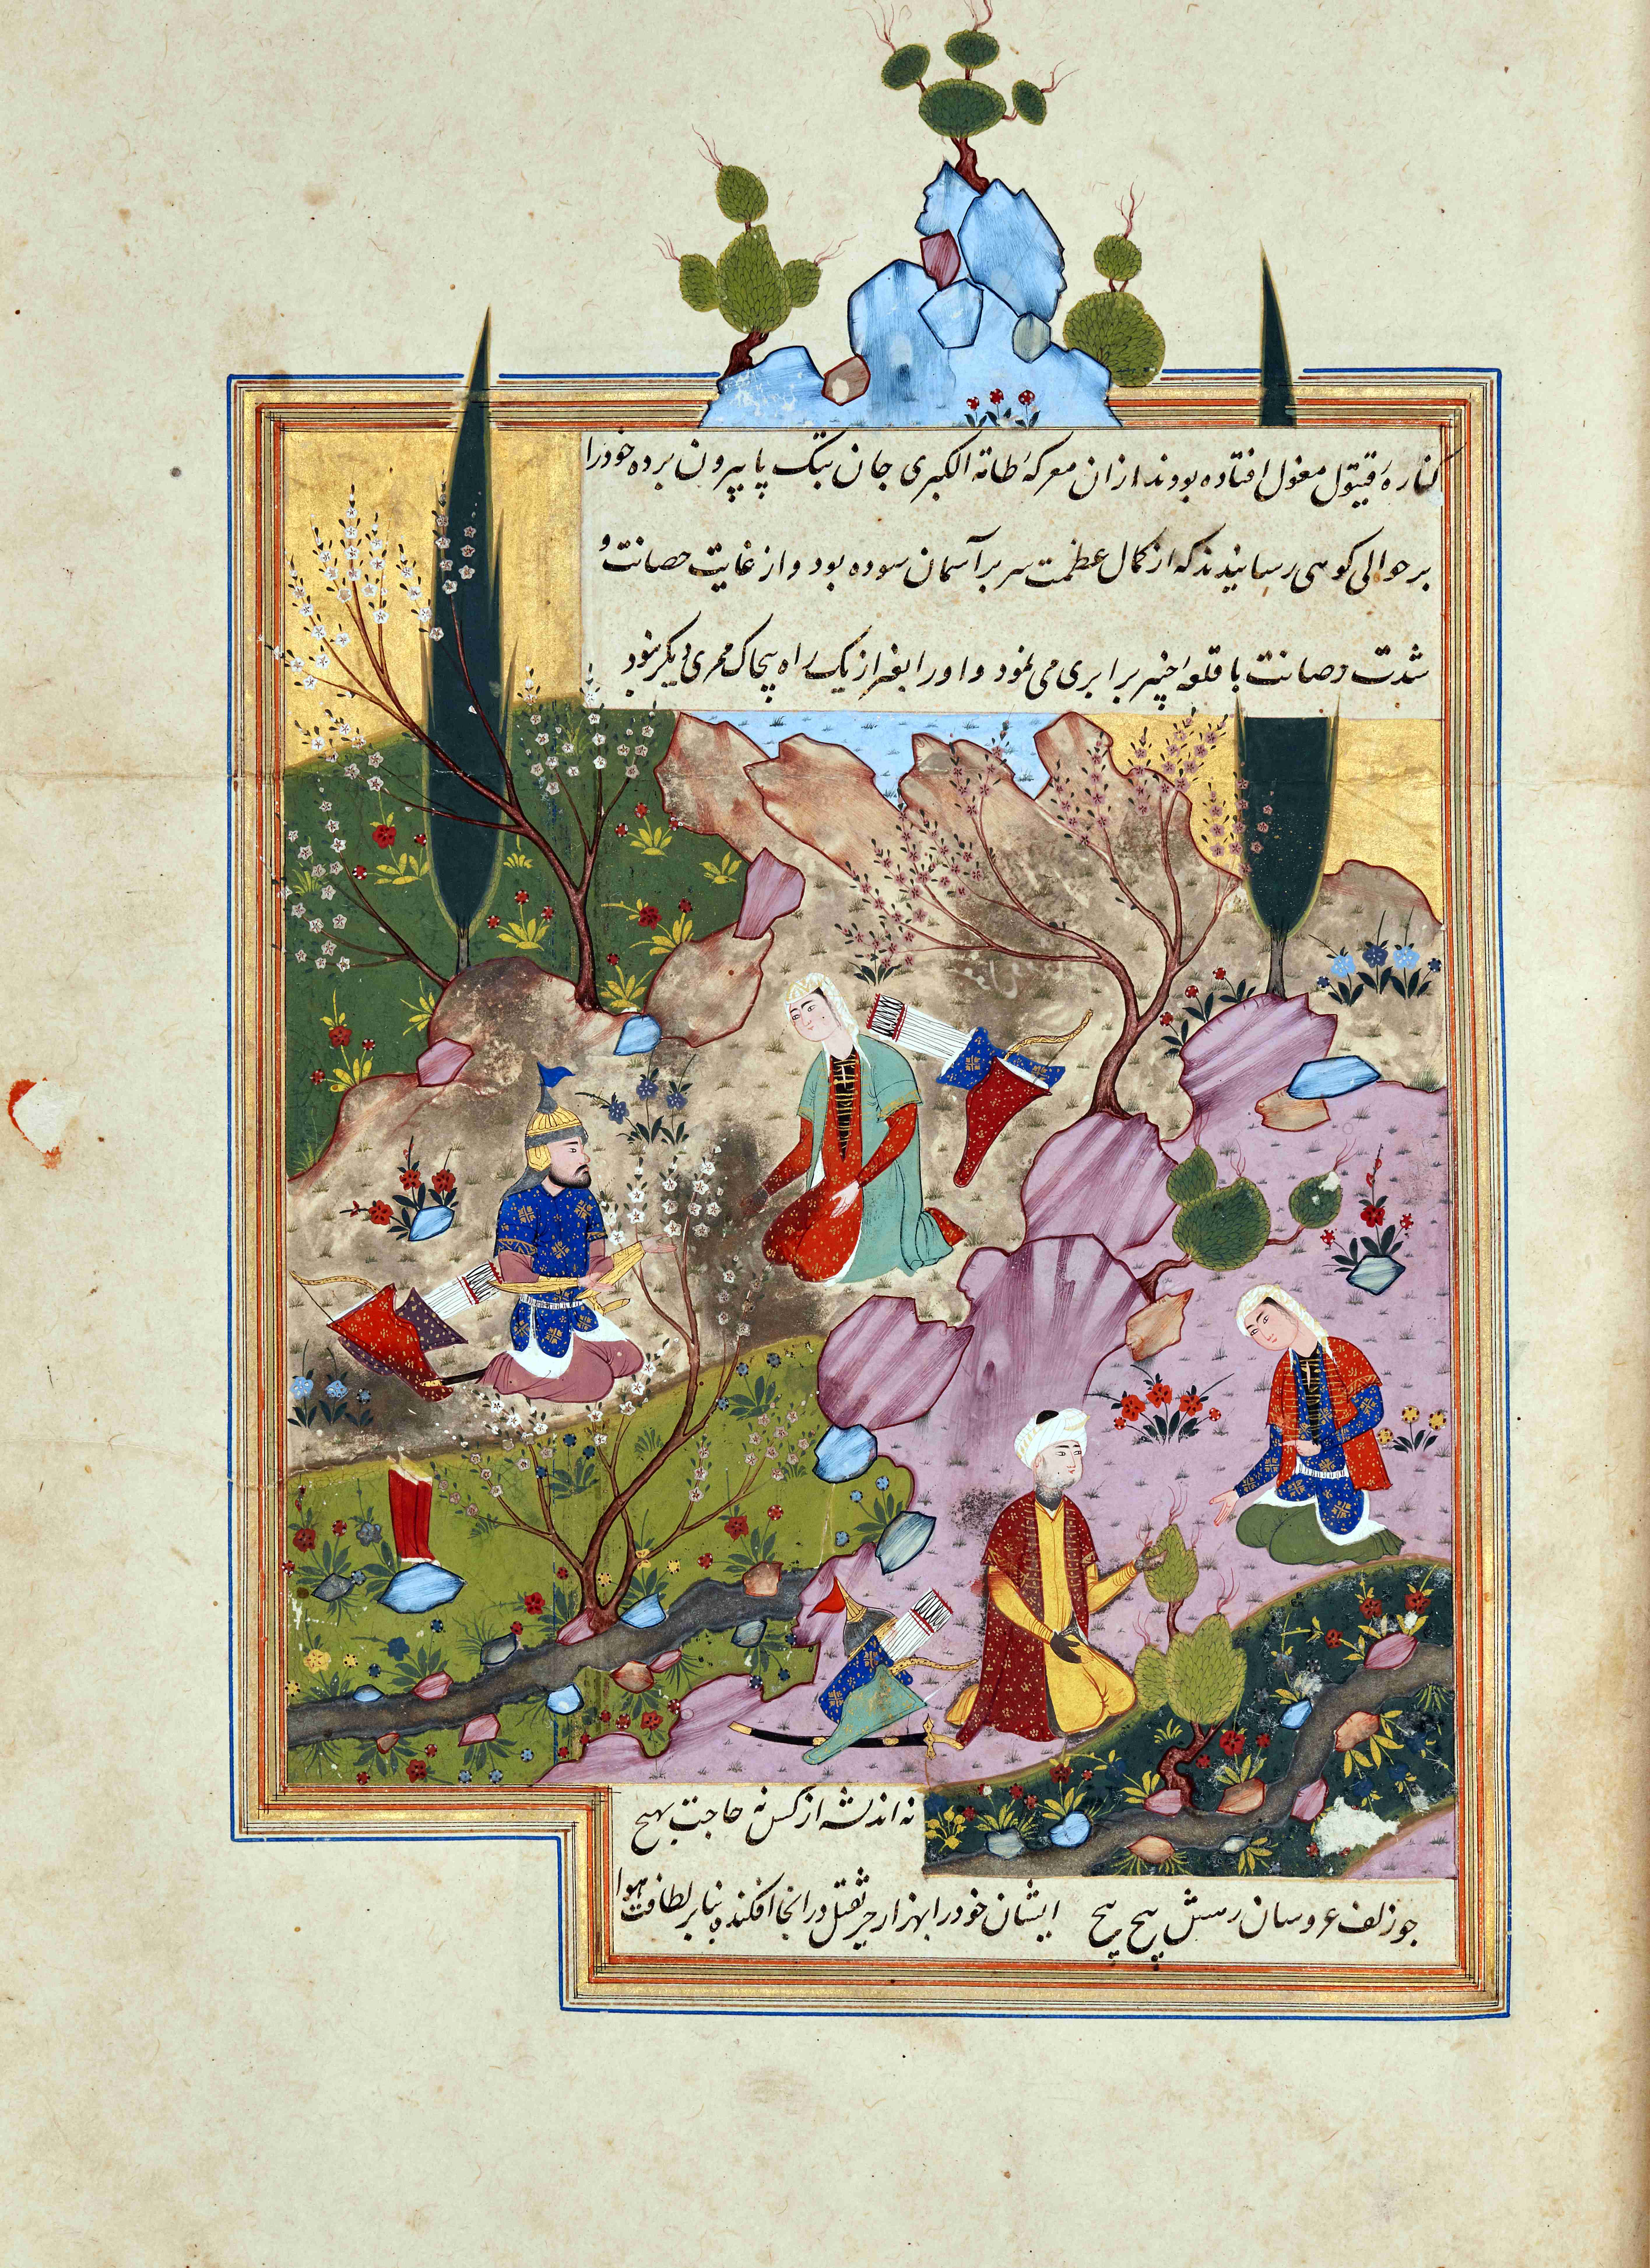 کناره قیتول مغول افتاده بودند از ان معرکه طامة الکبری جان بتک پا بیرون برده خود را
بر حوالی کوهی رسانیدند که از کمال عظمت سر بر آسمان سوده بود و از غایت حصانت و
شدت رصانت با قلعه خیبر برابری می نمود و او را بغیر از یک راه پیچاک ممری دیکر نبود
نه اندیشه از کس نه حاجت بهیچ
جو زلف عروسان رهش پیچ پیچ ایشان خود را بهزار جر ثقیل در انجا افکنده بنا بر لطافت هوا